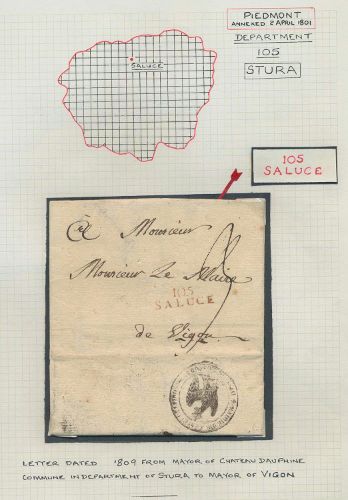 PIEDMONT
ANNEXED 2 APRIL 1801
DEPARTMENT
105
STURA
SALUCE
105
SALUCE
Monsieur
Monsieur Le Maire
105
SALUCE
de Vigon
LETTER DATED '809 FROM MAYOR OF CHATEAU DAUPHINE
COMMUNE IN DEPARTMENT OF STURA TO MAYOR OF VIGON